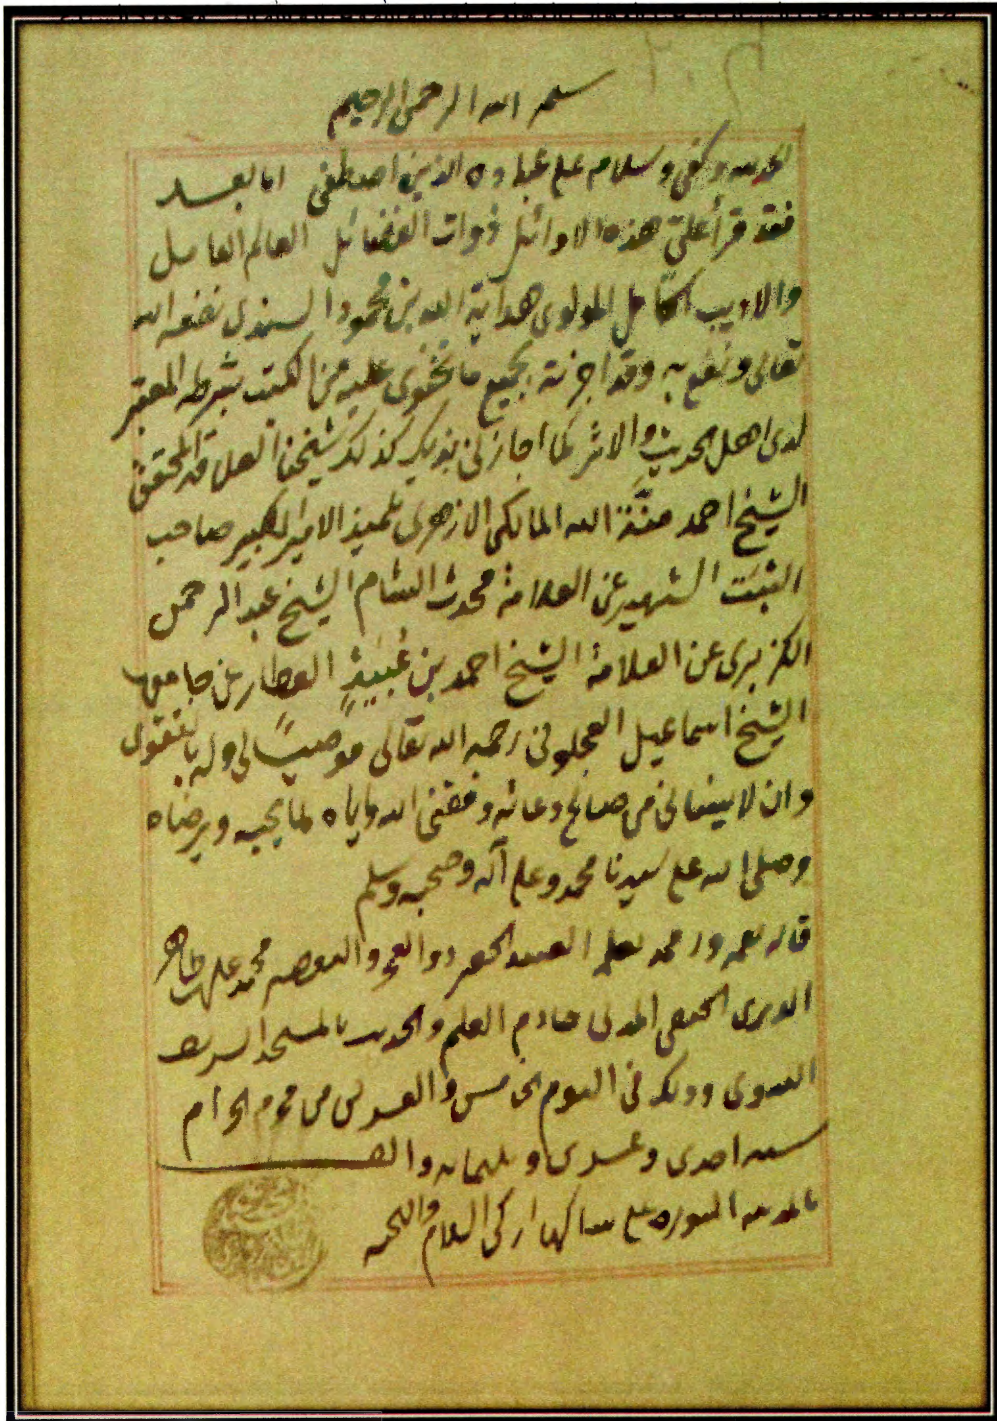 بسم الله الرحمن الرحيم
الحمد لله وكفى وسلام على عباده الذين اصطفى اما بعد
فقد قرأ علي هذه الاوائل ذوات الفضائل العالم الفاضل
والاديب الكامل المولوى هداية الله بن محمود السندى نفعه الله
تعالى ونفع به وقد اجزته بجميع ما تحتوى عليه من الكتب بشرطه المعتبر
لدى اهل الحديث والاثر كما اجازنى بذلك كذلك شيخنا العلامة المحقق
الشيخ احمد منّة الله المالكى الازهرى تلميذ الامير الكبير صاحب
الثبت الشهير عن العلامة محدث الشام الشيخ عبد الرحمن
الكزبرى عن العلامة الشيخ احمد بن عُبَيدٍ العطار عن جامعها
الشيخ اسماعيل العجلونى رحمه الله تعالى موصيًا لى وله بالتقوى
وان لا ينسانى من صالح دعائه وفقنى الله واياه لما يحبه ويرضاه
وصلى الله على سيدنا محمد وعلى آله وصحبه وسلم
قاله بفمه ورقمه بقلمه العبد الحقير ذو العجز والتقصير محمد على بن طاهر
الوترى الحنفى المدنى خادم العلم والحديث بالمسجد الشريف
النبوى وذلك فى اليوم الخامس والعشرين من محرم الحرام
سنه احدى وعشرين وثلثمائه والف
بالمدينه المنوره على ساكنها ازكى السلام والتحيه